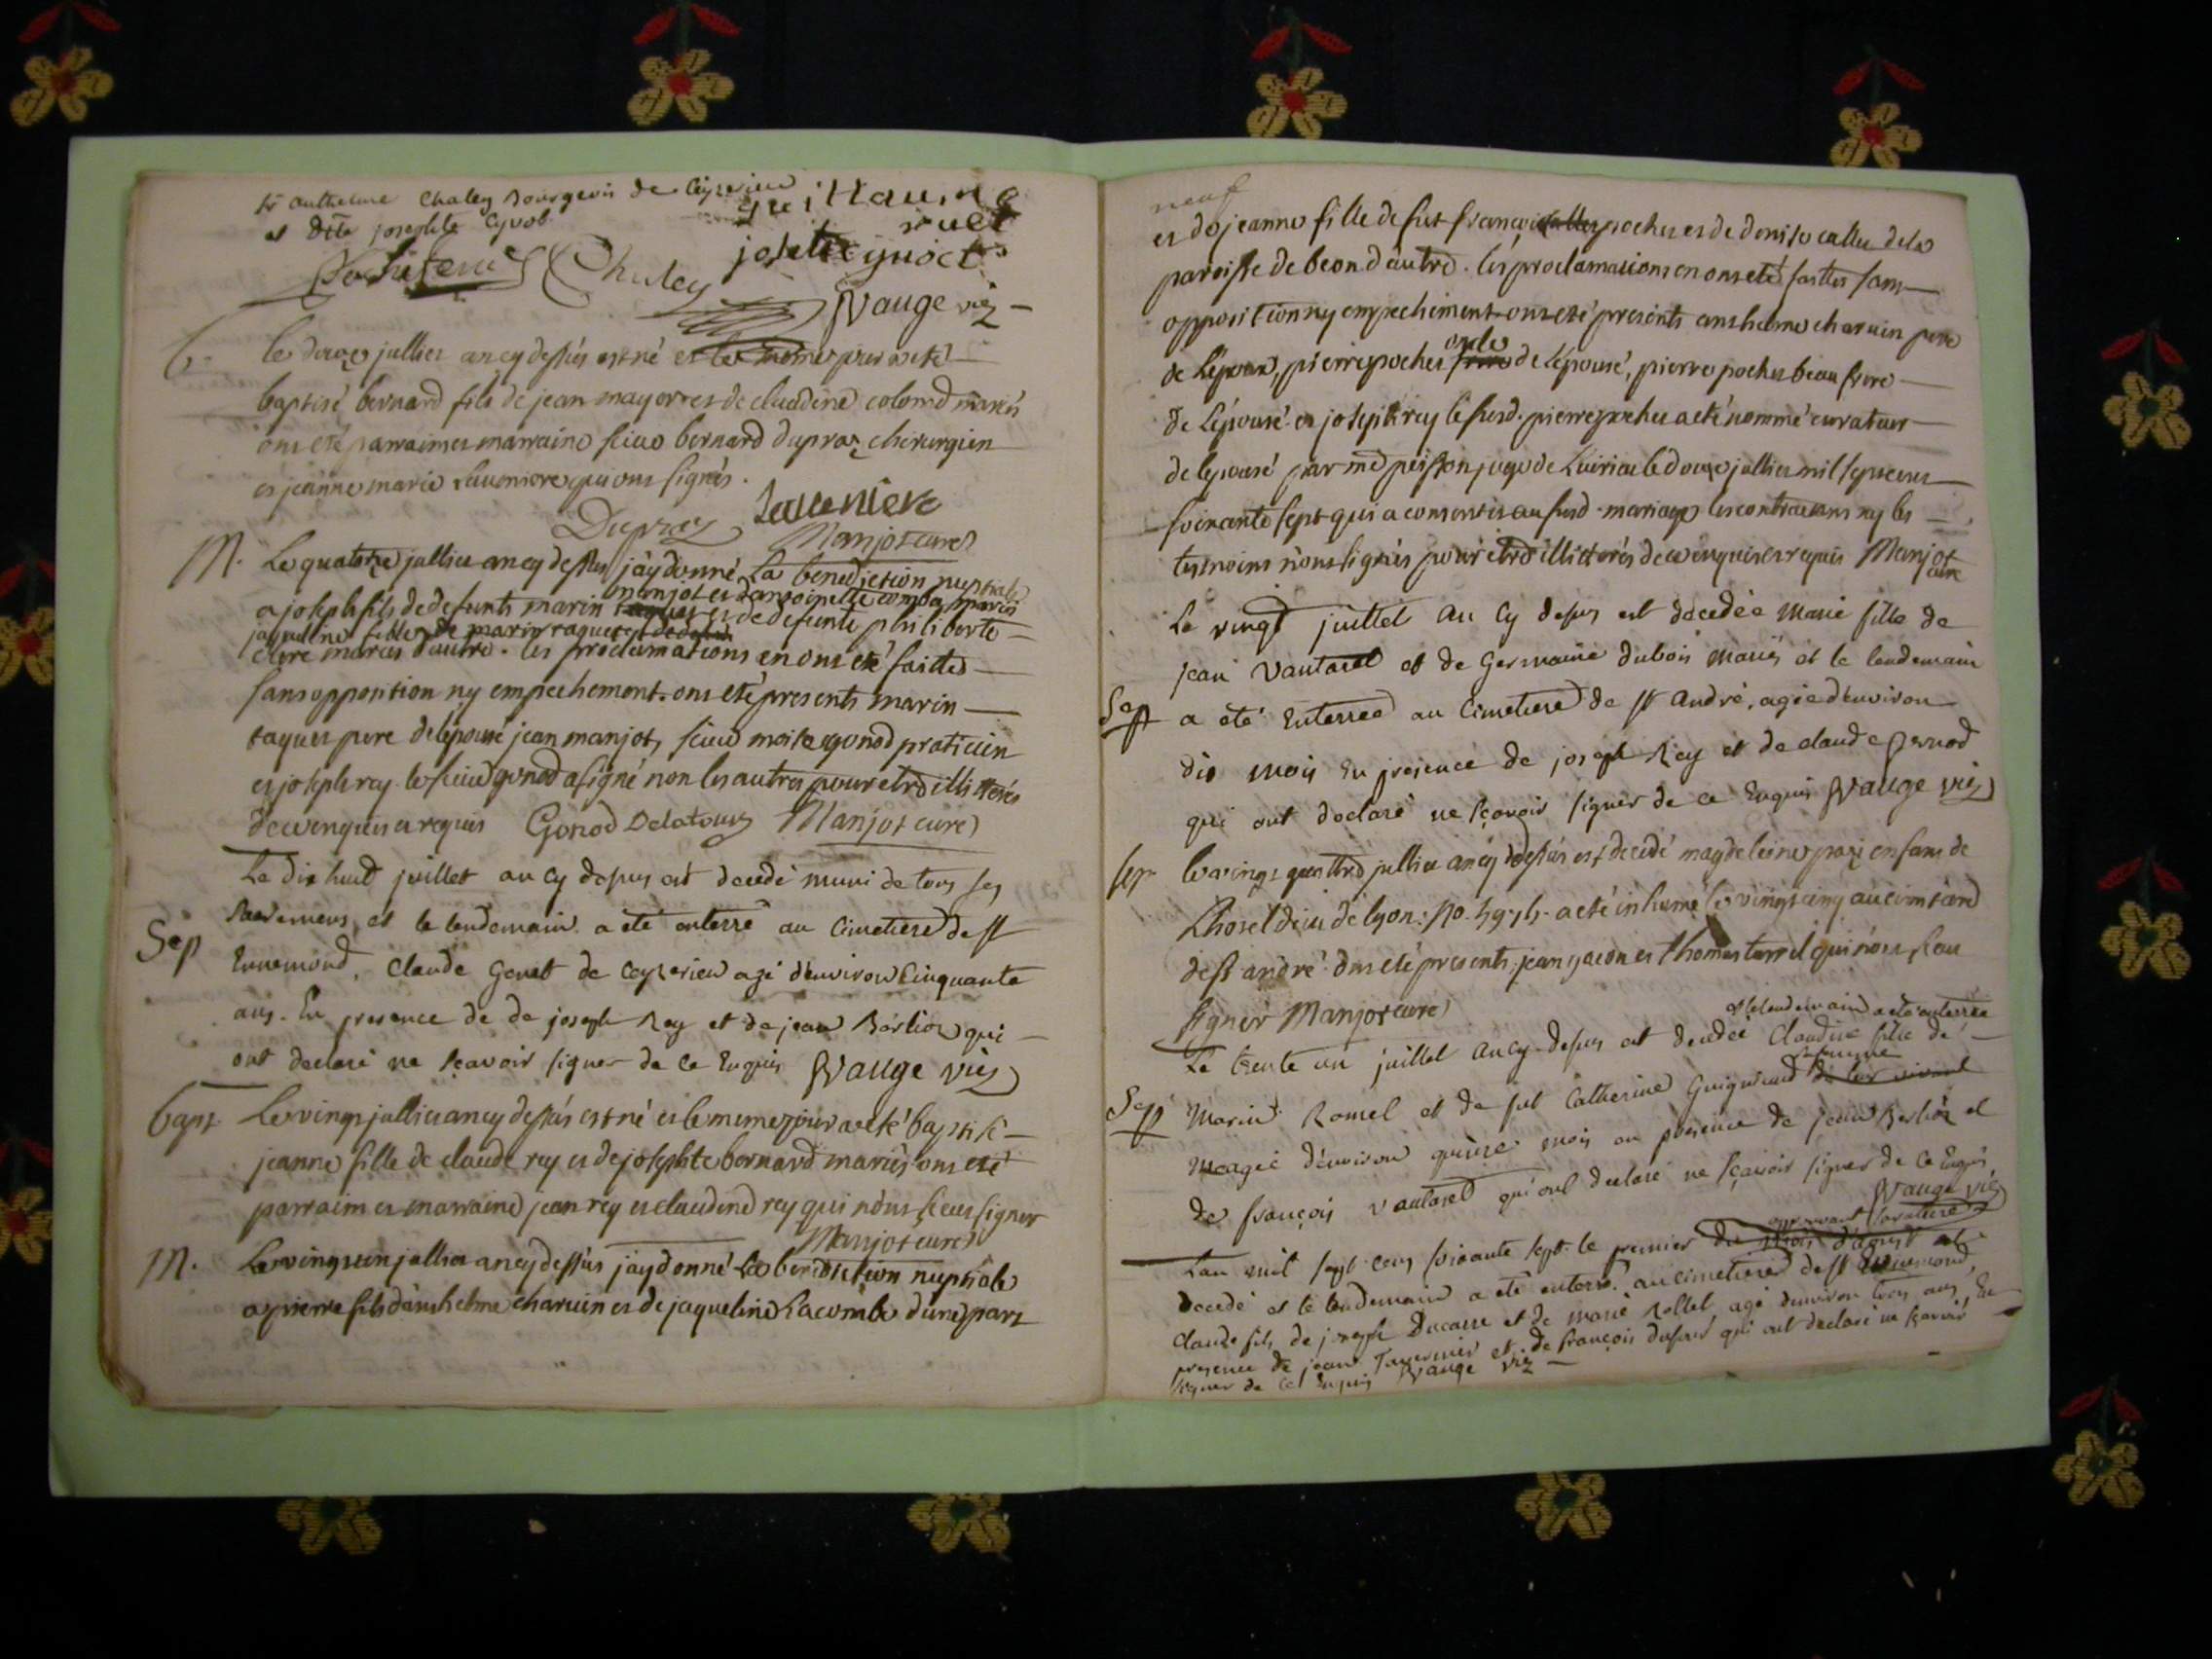 sr anthelme Chaley Bourgeois de Ceyzerieu
et dlle josephte Cyvot
guillaume
ruet
josette guiot
Chaley
Vauge vic
b. le douze jullier an cy dessus est né et le meme jour a eté
baptisé bernard fils de jean mayorx et de claudine colomb mariés
ont eté parrain et marraine sieur bernard dupraz chirurgien
et jeanne marie Lavoniere qui ont signés.
Dupraz Lavoniere
Manjot curé
M. Le quatorze jullier an cy dessus j'ay donné La benediction nuptiale
manjot et d'antoinette comba mariés
a joseph fils de defunts marin et de defunte philiberte
jaqueline fille de marin taquet
clerc mariés d'autre. les proclamations en ont eté faittes
sans opposition ny empechement. ont eté presents marin
taquet pere de lepouse jean manjot, sieur gonod praticien
et joseph rey. le sieur gonod a signé non les autres pour etre illiterés
de ce enquis et requis Gonod Delatour Manjot curé
Le dix huit juillet an cy dessus est decedé muni de tous ses
sacremens, et le lendemain a eté enterré au Cimetiere de st
Sep Ennemond, Claude Genet de Ceyzerieu agé d'environ Cinquante
ans. En presence de de joseph Rey et de jean Berlioz qui
ont declaré ne sçavoir signer de ce Enquis Vauge vic
bapt. Le vingt jullier an cy dessus est né et le meme jour a eté baptisé
jeanne fille de claude rey et de josephte bernard mariés. ont eté
parrain et marraine jean rey et claudine rey qui n'ont sceu signer
Manjot curé
M. Le vingt un jullier an cy dessus j'ay donné La benediction nuptiale
a pierre fils d'anthelme charvin et de jaqueline Lacombe d'une part
neuf
et de jeanne fille de fut françois pochet et de denise callu de la
paroisse de beon d'autre. les proclamations en ont eté faittes sans
opposition ny empechement ont eté presents anthelme charvin pere
oncle
de L'epoux, pierre pochet frere de l'epouse, pierre pochet beau frere
de L'epouse et joseph rey le susd. pierre pochet a eté nommé curateur
de lepouse par me peisson juge de Luirieu le douze jullier mil sept cent
soixante sept qui a consenti au susd. mariage les contractans ny les
temoins n'ont signés pour etre illiterés de ce enquis et requis Manjot
curé
Le vingt juillet an cy dessus est decedée Marie fille de
jean Vautaret et de Germaine dubois mariés et le lendemain
Sep a eté Enterrée au Cimetiere de st André, agée d'environ
dix mois En presence de joseph Rey et de claude pernod
qui ont declaré ne sçavoir signer de ce Enquis Vauge vic
sep. le vingt quattre jullier an cy dessus est decedé magdeleine enfant de
L'hotel dieu de lyon: a eté inhumé le vingt cinq au cimetiere
de st andré. ont eté presents jean et thomas qui n'ont sceu
signer Manjot curé
et le lendemain a eté enterrée
Le trente un juillet an cy dessus est decedée Claudine fille de
Sep Marin Romel et de fut Catherine Guignard de leur vivant
agée d'environ quinze mois en presence de jean Berlioz et
de françois vautaret qui ont declaré ne sçavoir signer de ce Enquis,
Vauge vic
L'an mil sept cens soixante sept le premier du mois d'aoust est
decedé et le lendemain a eté enterré au cimetiere de st Ennemond,
claude fils de joseph Ducarre et de marie Rollet agé d'environ trois ans, En
presence de jean Tavernier et de françois dufour qui ont declaré ne sçavoir
signer de ce Enquis Vauge vic